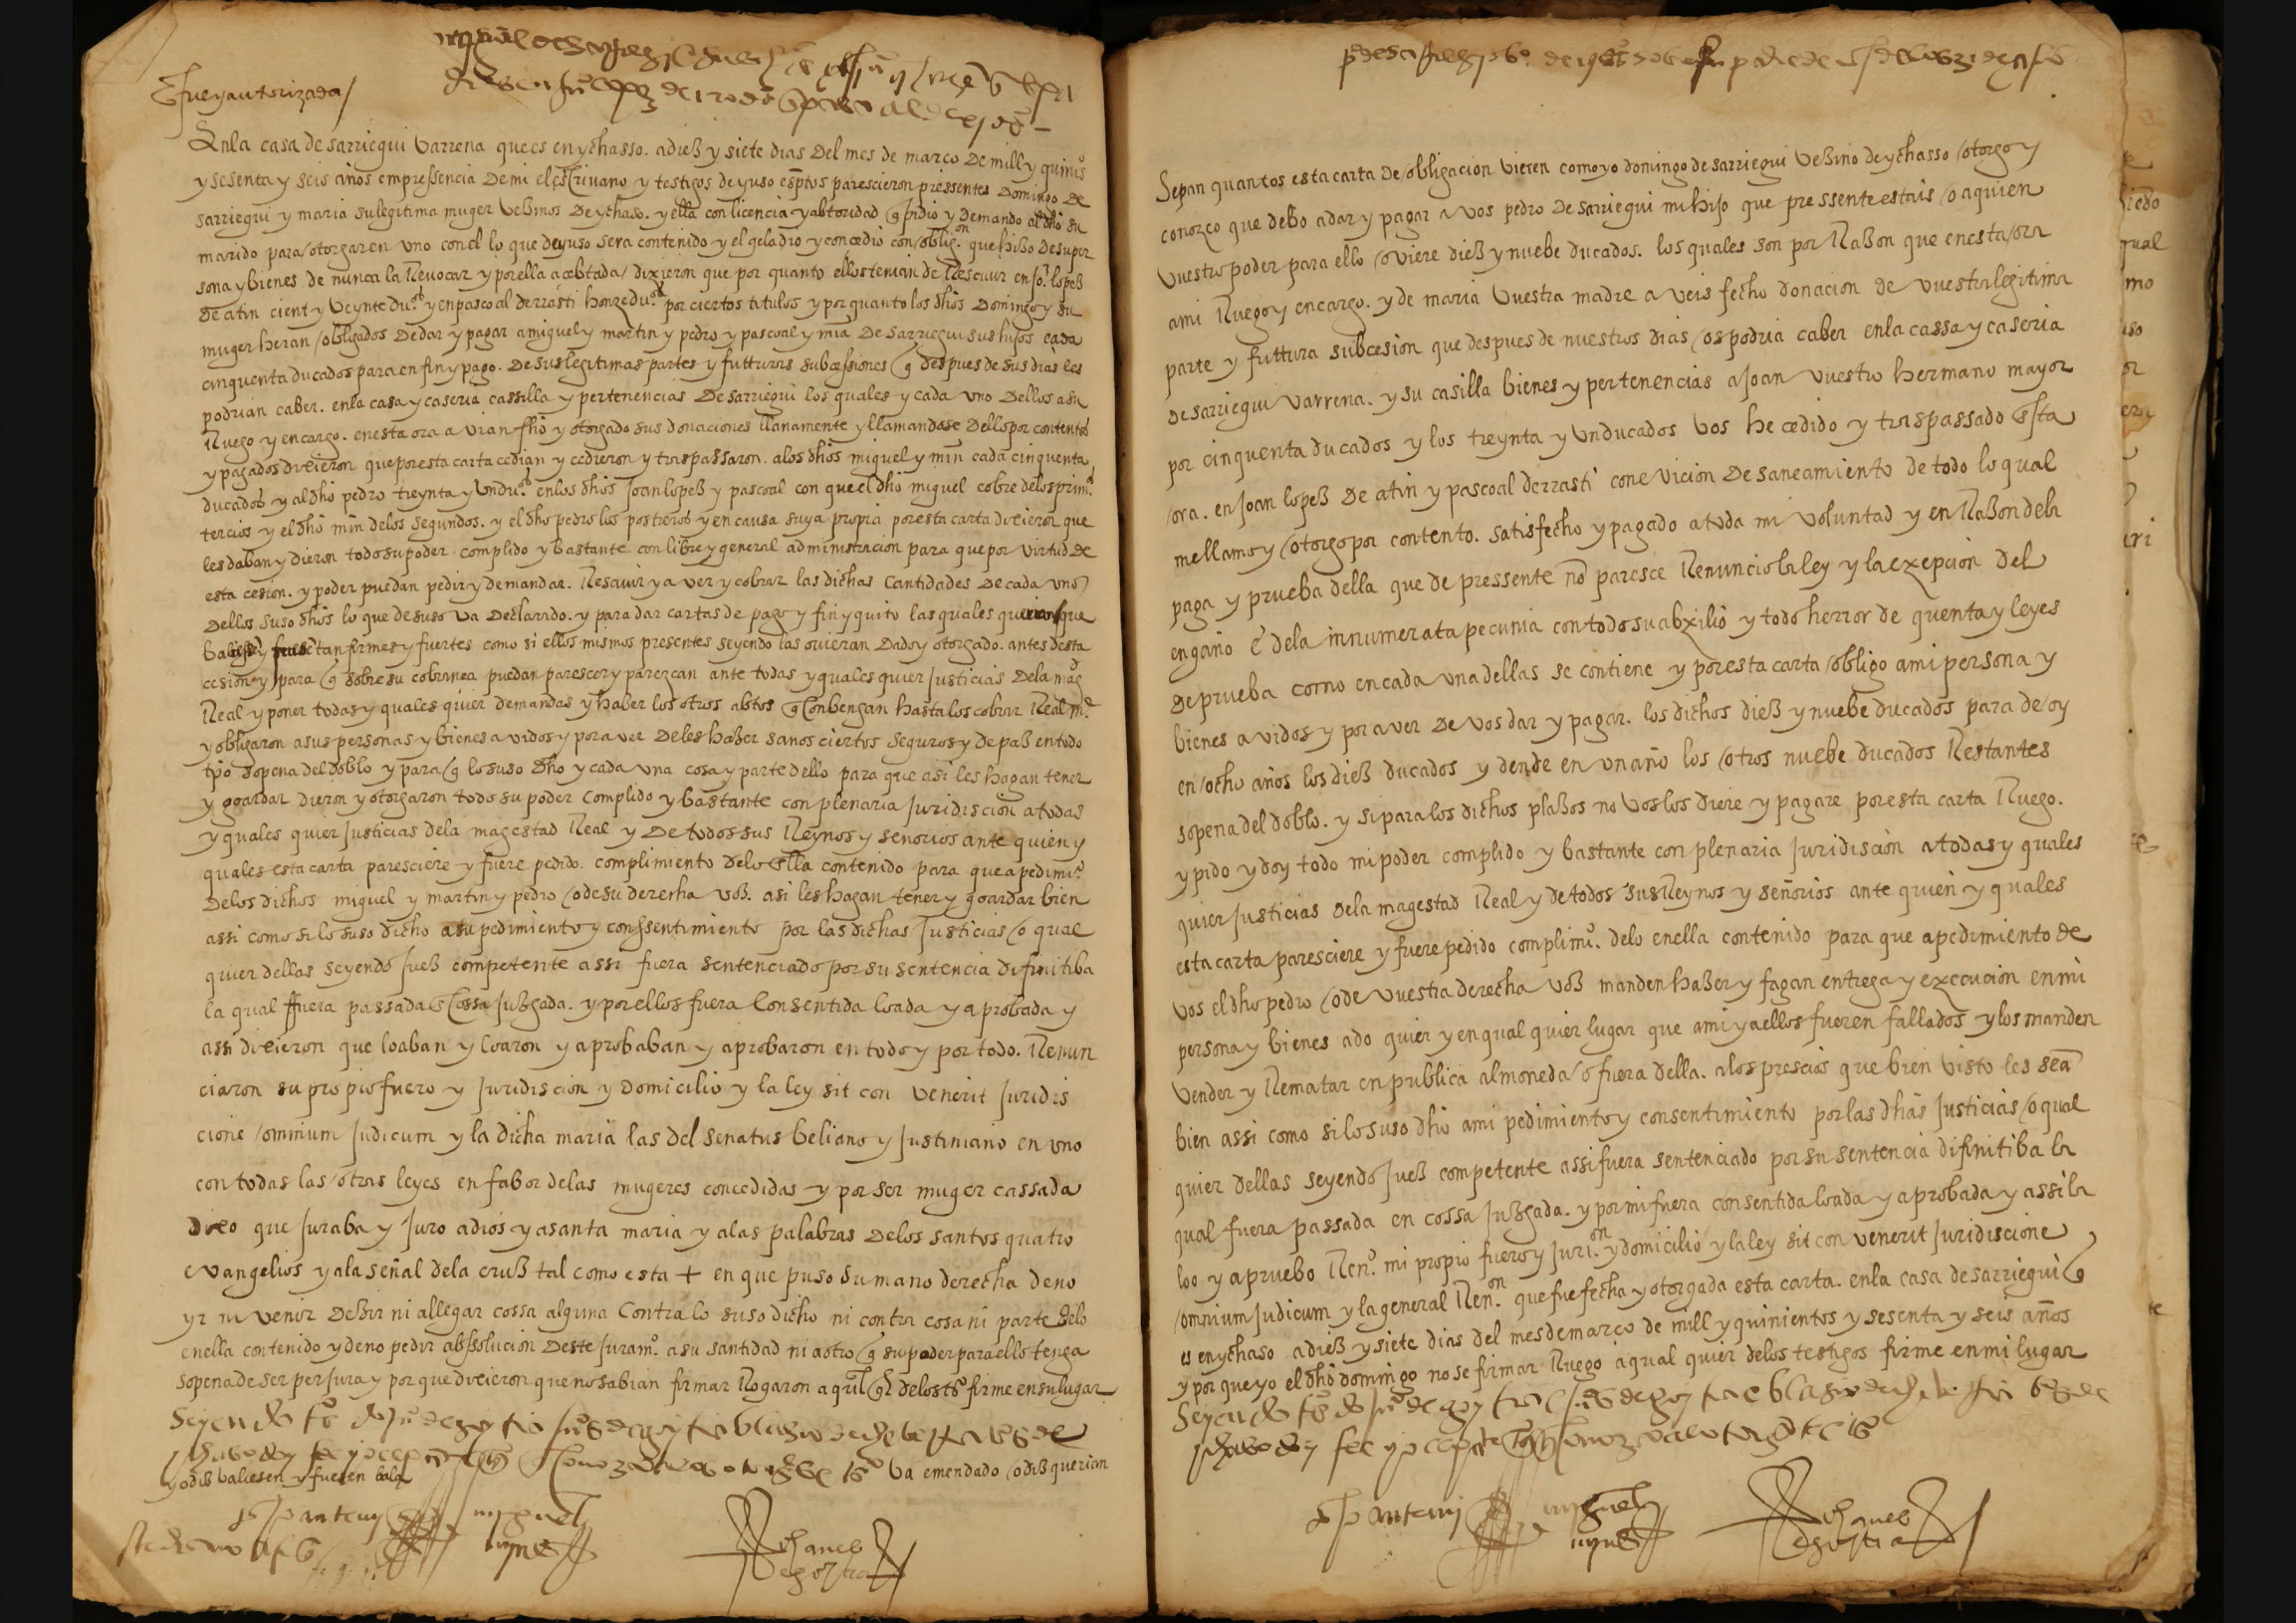 fue autorizada /
En la casa de sarriegui barrena que es en ychasso. a dieß y siete dias del mes de março de mill y quinisº
y sesenta y seis años em pressencia de mi el escrivano y testigos de yuso esptos parescieron pressentes domingo de
sarriegui y maria su legitima muger veßinos de ychaso. y ella con licencia y abtoridad q pidio y demando al dho su
marido para otorgar en uno con el lo que de yuso sera contenido y el ge la dio y concedio con oblig.on que hißo de su per
sona y bienes de nunca la Revocar y por ella acebtada / dixieron que por quanto ellos tenian de Rescivir en joº. lopeß
de atin cient y veynte du.os y en pascoal derrasti honze du.os por ciertos titulos y por quanto los dhos domingo y su
muger heran obligados de dar y pagar a miguel y martin y pedro y pascoal y mia de sarriegui sus hijos cada
cinquenta ducados para en fin y pago. de sus legitimas partes y futturas subcessiones q despues de sus dias les
podrian caber. en la casa y caseria cassilla y pertenencias de sarriegui los quales y cada uno dellos a su
Ruego y encargo. en esta ora avian fho y otorgado sus donaciones llanamente y llamandose dellos por contentos
y pagados dixieron que por esta carta cedian y cedieron y traspassaron. a los dhos miguel y min cada cinquenta
ducados y al dho pedro treynta y un du.os en los dhos joan lopeß y pascoal con que el dho miguel cobre de los prim.os
tercios y el dho min de los segundos. y el dho pedro los postreros y en causa suya propia por esta carta dixieron que
les daban y dieron todo su poder complido y bastante con libre y general administracion para que por virtud de
esta cesion. y poder puedan pedir y demandar. Rescivir y aver y cobrar las dichas cantidades de cada uno
dellos suso dhos lo que de suso va declarado. y para dar cartas de pago y fin y quito las quales querian que
baliesen y fuesen tan firmes y fuertes como si ellos mismos presentes seyendo las ovieran dado y otorgado. antes desta
cesion y para q sobre su cobranca puedan parescer y parezcan ante todas y quales quier justicias de la mag.d
Real y poner todas y quales quier demandas y haber los otros abtos q conbengan hasta los cobrar Realm.te
y obligaron a sus personas y bienes avidos y por aver de les haßer sanos ciertos seguros y de paß en todo
tpo so pena del doblo y para q lo suso dho y cada una cosa y parte dello para que asi les hagan tener
y goardar dieron y otorgaron todo su poder complido y bastante con plenaria juridiscion a todas
y quales quier justicias de la magestad Real y de todos sus Reynos y señorios ante quien y
quales esta carta paresciere y fuere pedido. complimiento de lo en ella contenido para que a pedimiº.
de los dichos miguel y martin y pedro o de su derecha voß. asi les hagan tener y goardar bien
assi como si lo suso dicho a su pedimiento y conssentimiento por las dichas justicias o qual
quier dellas seyendo jueß competente assi fuera sentenciado por su sentencia difinitiba
la qual ffuera passada en cossa jußgada. y por ellos fuera consentida loada y aprobada y
assi dixieron que loaban y loaron y aprobaban y aprobaron en todo y por todo. Renun
ciaron su propio fuero y juridiscion y domicilio y la ley sit con venerit juridis
cione omnium judicum y la dicha maria las del senatus beliano y justiniano en uno
con todas las otras leyes en fabor de las mugeres concedidas y por ser muger cassada
dixo que juraba y juro a dios y a santa maria y a las palabras de los santos quatro
evangelios y a la señal de la cruß tal como esta + en que puso su mano derecha de no
yr ni venir deßir ni allegar cossa alguna contra lo suso dicho ni contra cosa ni parte de lo
en ella contenido y de no pedir abssolucion deste juramº. a su santidad ni a otro q su poder para ello tenga
so pena de ser perjura y por que dixieron que no sabian firmar Rogaron a qual qr de los tsº firme en su lugar
va emendado o diß querian
y o diß baliesen y fuesen bala
miguel
ynes
Johanes
Sepan quantos esta carta de obligacion vieren como yo domingo de sarriegui veßino de ychasso otorgo y
conozco que debo a dar y pagar a vos pedro de sarriegui mi hijo que pressente estais o a quien
vuestro poder para ello oviere dieß y nuebe ducados. los quales son por Raßon que en esta ora
a mi Ruego y encargo. y de maria vuestra madre aveis fecho donacion de vuestra legitima
parte y futtura subcesion que despues de nuestros dias os podria caber en la cassa y caseria
de sarriegui varrena. y su casilla bienes y pertenencias a Joan vuestro hermano mayor
por cinquenta ducados y los treynta y un ducados vos he cedido y traspassado esta
ora. en Joan lopeß de atin y pascoal derrasti con evicion de saneamiento de todo lo qual
me llamo y otorgo por contento. satisfecho y pagado a toda mi voluntad y en Raßon de la
paga y prueba della que de pressente no paresce Renuncio la ley y la exepcion del
engaño e de la innumerata pecunia con todo su abxilio y todo herror de quenta y leyes
de prueba como en cada una dellas se contiene y por esta carta obligo a mi persona y
bienes avidos y por aver de vos dar y pagar. los dichos dieß y nuebe ducados para de oy
en ocho años los dieß ducados y dende en un año los otros nuebe ducados Restantes
so pena del doblo. y si para los dichos plaßos no vos los diere y pagare por esta carta Ruego.
y pido y doy todo mi poder complido y bastante con plenaria juridiscion a todas y quales
quier justicias de la magestad Real y de todos sus Reynos y señorios ante quien y quales
esta carta paresciere y fuere pedido complimiº. de lo en ella contenido para que a pedimiento de
vos el dho pedro o de vuestra derecha voß manden haßer y fagan entrega y execucion en mi
persona y bienes a do quier y en qual quier lugar que a mi y a ellos fueren fallados y los manden
vender y Rematar en publica almoneda o fuera della. a los prescios que bien visto les sea
bien assi como si lo suso dho a mi pedimiento y consentimiento por las dhas justicias o qual
quier dellas seyendo jueß competente assi fuera sentenciado por su sentencia difinitiba la
qual fuera passada en cossa jußgada. y por mi fuera consentida loada y aprobada y assi la
loo y apruebo Ren.º mi propio fuero y juri.on y domicilio y la ley sit con venerit juridiscione
omnium judicum y la general Ren.on que fue fecha y otorgada esta carta. en la casa de sarriegui q
es en ychaso a dieß y siete dias del mes de março de mill y quinientos y sesenta y seis años
y por que yo el dho domingo no se firmar Ruego a qual quier de los testigos firme en mi lugar
miguel
ynes
Johanes